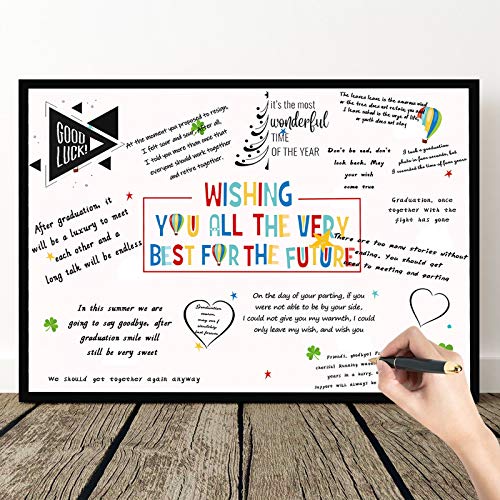 GOOD
LUCK!
At the moment you proposed to resign,
I felt sour and sour. After all,
I told you more than once that
everyone should work together
and retire together.
it's the most
wonderful
TIME
OF THE YEAR
The leaves leave in the
or the tree does not retain, you and
I have sailed to the verge of life
or youth does not stay
Don't be sad, don't
look back. May your
wish come true
I took a graduation
photo in four seconds, but
I recorded the time of four years
Graduation, once
together With the
fight has gone
After graduation, it
will be a luxury to meet
each other and a
long talk will be endless
WISHING
YOU ALL THE VERY
BEST FOR THE FUTURE
There are too many stories without
ending. You should get
used to meeting and parting
In this summer we are
going to say goodbye, after
graduation smile will
still be very sweet
Graduation
On the day of your parting, if you
were not able to be by your side,
I could not give you my warmth, I could
only leave my wish, and wish you
We should get together again anyway
Friends, goodbye!
cherish
years in a hurry.
Support will always be